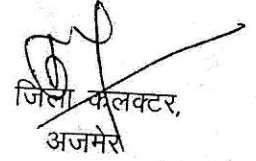 जिला कलक्टर,
अजमेर